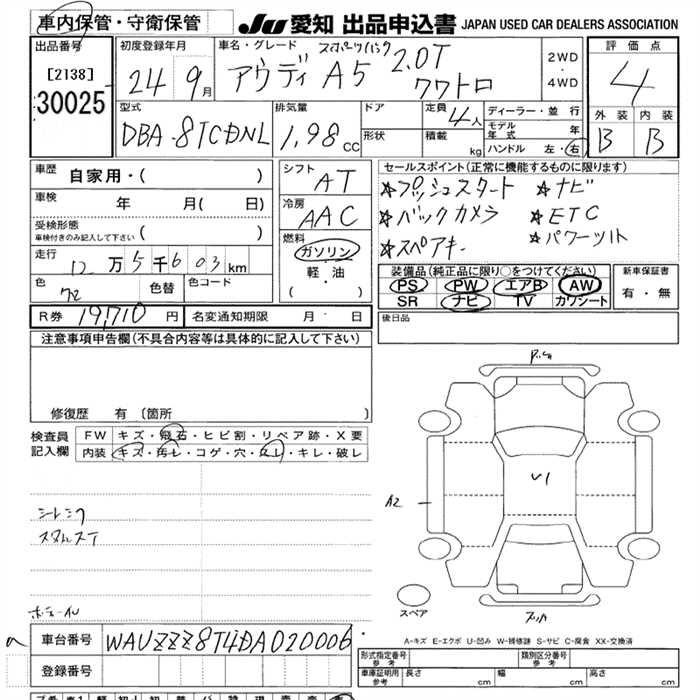 車内保管・守衛保管
JU 愛知 出品申込書 JAPAN USED CAR DEALERS ASSOCIATION
出品番号 初度登録年月 車名・グレード スポーツバック 評価点
[2138] 24 9月 アウディ A5 2.0T クワトロ 2WD ・ 4WD 4
30025 型式 排気量 ドア 定員 4人 ディーラー・並行 外装 内装
DBA-8TCDNL 1.98 cc 形状 積載 kg モデル年式 年 B B
ハンドル 左・右
車歴 自家用・( ) シフト AT セールスポイント(正常に機能するものに限ります)
車検 年 月( 日) 冷房 AAC ☆プッシュスタート ☆ナビ
受検形態 ☆バックカメラ ☆ETC
車検付きのみ記入して下さい ( ) 燃料 ☆スペアキー ☆パワーシート
走行 12万5千603km ガソリン 装備品(純正品に限り○をつけてください) 新車保証書
色 クロ 色替 色コード 軽・油 PS PW エアB AW 有・無
( ・ ) SR ナビ TV カワシート
R券 19,710円 名変通知期限 月・日 後日品
注意事項申告欄(不具合内容等は具体的に記入して下さい)
修復歴 有〔箇所 〕
検査員 FW キズ・飛石・ヒビ割・リペア跡・X要
記入欄 内装 キズ・汚レ・コゲ・穴・スレ・キレ・破レ
A2 U1
スペア
車台番号 WAUZZZ8T4DA020006
A-キズ E-エクボ U-凹み W-補修跡 S-サビ C-腐食 XX-交換済
登録番号 形式指定番号 参考 類別区分番号 参考
車庫証明用 参考 長さ cm 幅 cm 高さ cm